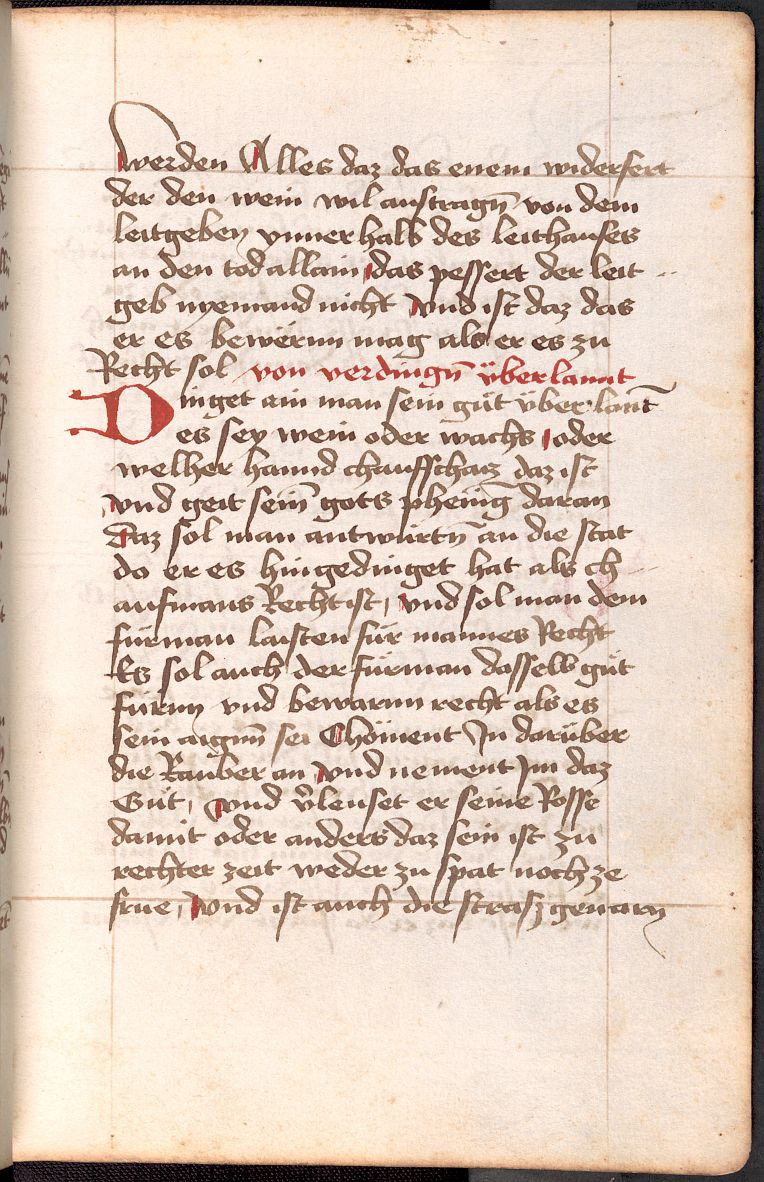 werden Alles daz das enem widerfert
der den wein wil austragn̄ von dem
leitgeben ynnerhalb des leithauses
an den tod allain das pessert der leit
geb nyemand nicht Vnd ist daz das
er es bewërnn mag als er es zu
Recht sol von verdingn̄ v̈ber lannt
Dinget ain man sein gu̇t v̈ber lant̄
es sey wein oder wachs oder
welher hannd chauffschacz daz ist
vnd geit sein̄ gots pheninḡ daran
Daz sol man antwürtn̄ an die stat
do er es hingedinget hat als ch
aufmans Recht ist, vnd sol man dem
fürman laisten für mannes Recht
Es sol auch der fürman dasselb gu̇t
fürnn vnd bewarnn recht als es
sein aigenn̄ sei Chöment Im darüber
die Rauber an vnd nement Im daz
Gu̇t, vnd v̄leuset er seine Rosse
damit oder anders daz sein ist zu
rechter zeit weder zu spat noch ze
frue, vnd ist auch die strasz gevarn